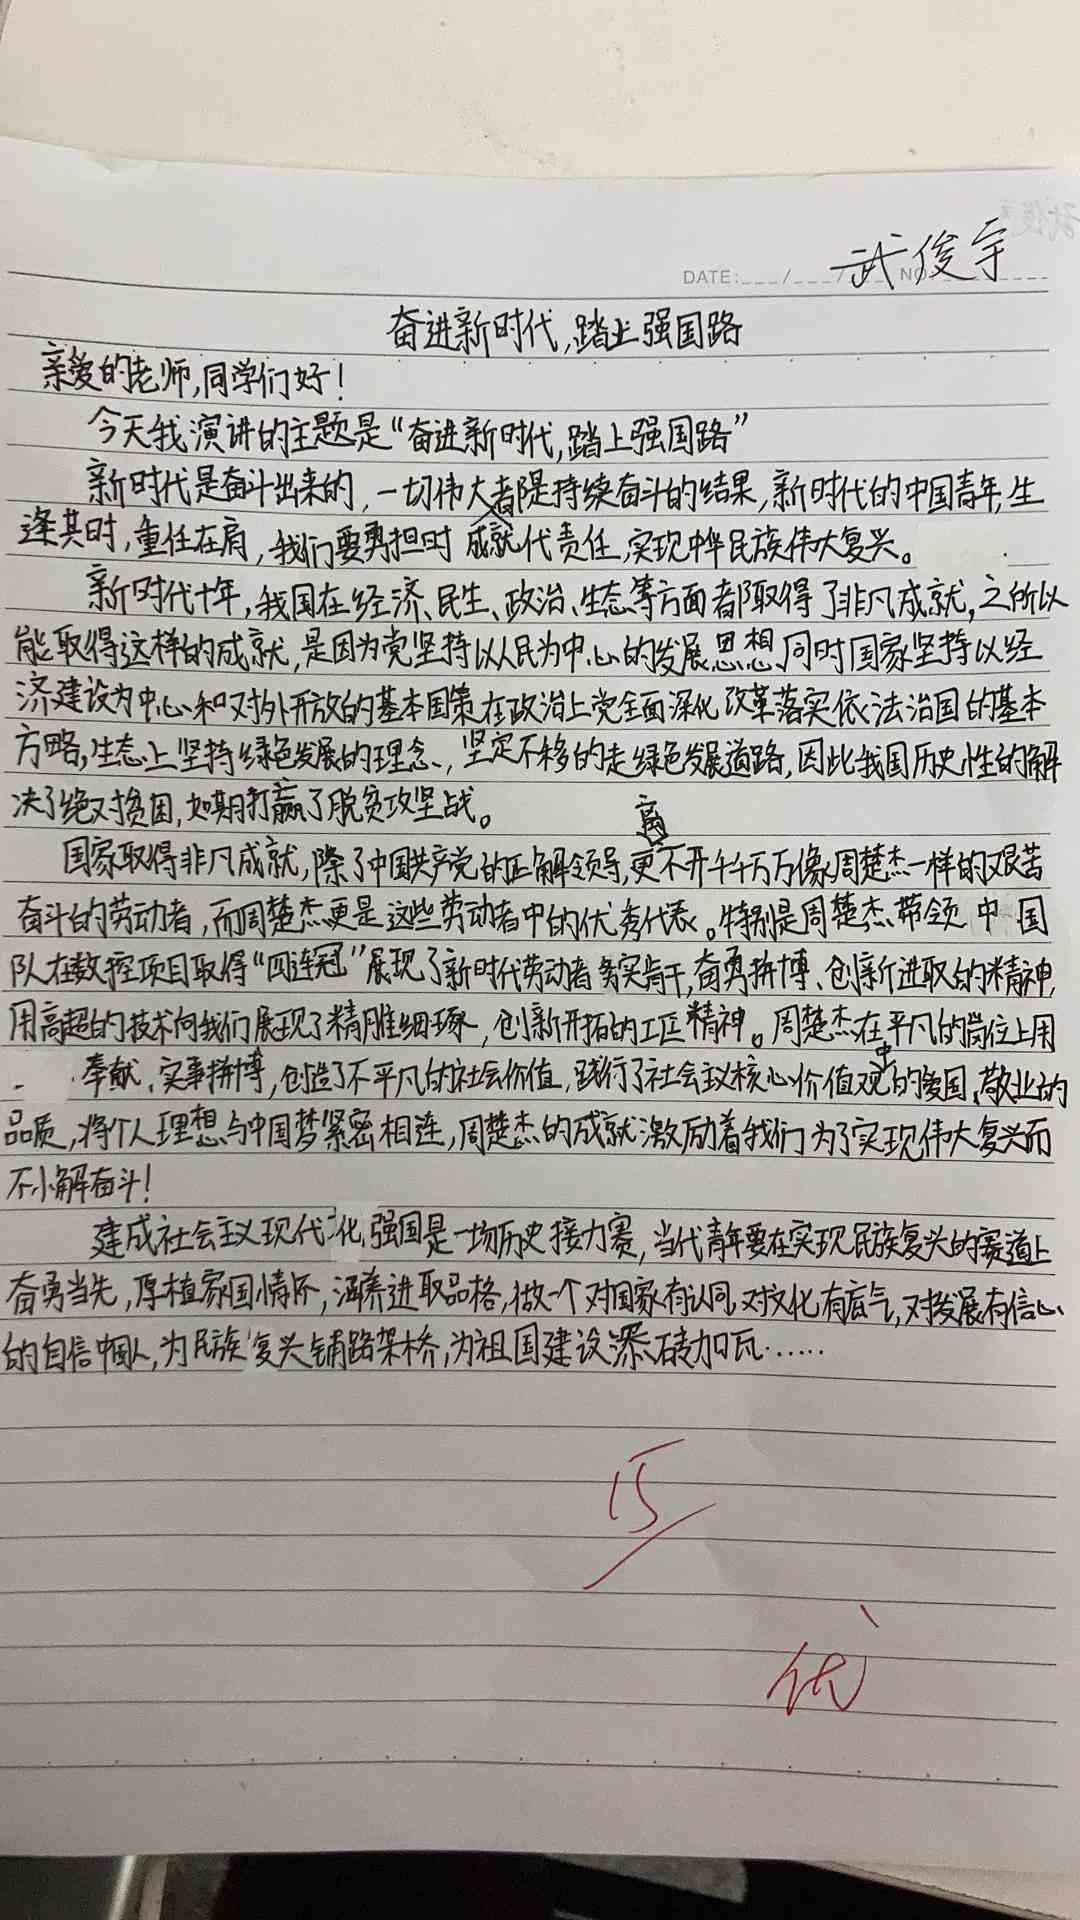 武俊宇
DATE: ___/___/___ NO.
奋进新时代,踏上强国路
亲爱的老师,同学们好!
今天我演讲的主题是“奋进新时代,踏上强国路”
新时代是奋斗出来的,一切伟大都是持续奋斗的结果,新时代的中国青年,生
逢其时,重任在肩,我们要勇担时 成就 代责任,实现中华民族伟大复兴。
新时代十年,我国在经济、民生、政治、生态等方面都取得了非凡成就,之所以
能取得这样的成就,是因为党坚持以人民为中心的发展思想,同时国家坚持以经
济建设为中心和对外开放的基本国策在政治上党全面深化改革落实依法治国的基本
方略,生态上坚持绿色发展的理念、,坚定不移的走绿色发展道路,因此我国历史性的解
决了绝对贫困,如期打赢了脱贫攻坚战。
国家取得非凡成就,除了中国共产党的正解领导,更离不开千千万万像周楚杰一样的艰苦
奋斗的劳动者,而周楚杰更是这些劳动者中的优秀代表。特别是周楚杰带领中国
队在数控项目取得“四连冠”展现了新时代劳动者务实肯干,奋勇拼搏、创新进取的精神,
用高超的技术向我们展现了精雕细琢,创新开拓的工匠精神。周楚杰在平凡的岗位上用
奉献、实事拼搏,创造了不平凡的社会价值,践行了社会主义核心价值观中的爱国、敬业的
品质,将个人理想与中国梦紧密相连,周楚杰的成就激励着我们为了实现伟大复兴而
不小解奋斗!
建成社会主义现代化强国是一场历史接力赛,当代青年要在实现民族复兴的赛道上
奋勇当先,厚植家国情怀,涵养进取品格,做一个对国家有认同,对文化有底气,对发展有信心
的自信中国人,为民族复兴铺路架桥,为祖国建设添砖加瓦……
15
优